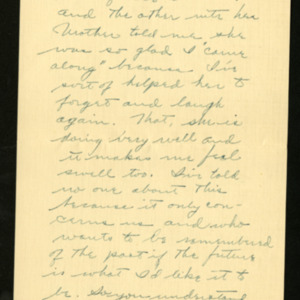 and the other with her
Mother told me she
was so glad I "came
along" because I've
sort of helped her to
forget and laugh
again. That, she is
doing very well and
it makes me feel
swell too. I've told
no one about this
because it only con-
cerns us and who
wants to be remembered
of the past if the future
is what I'd like it to
be. So you understand